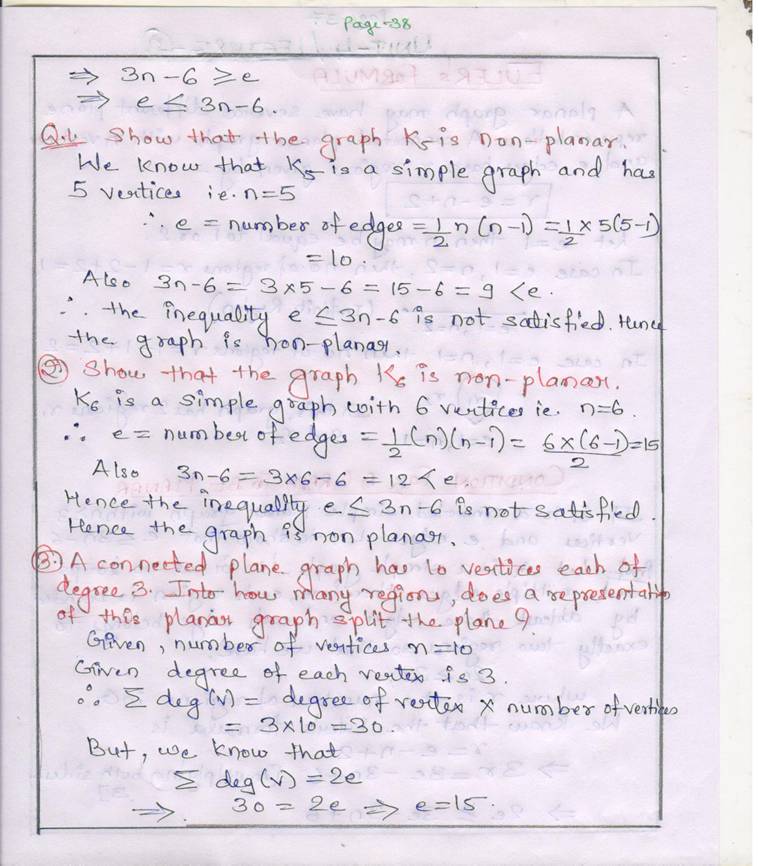 Page-38
⇒ 3n-6 ≥ e
⇒ e ≤ 3n-6.
Q.1. Show that the graph K5 is non-planar.
We know that K5 is a simple graph and has
5 vertices ie. n=5
∴ e = number of edges = 1/2 n (n-1) = 1/2 × 5(5-1)
= 10.
Also 3n-6 = 3×5-6 = 15-6 = 9 < e.
∴ the inequality e ≤ 3n-6 is not satisfied. Hence
the graph is non-planar.
2. Show that the graph K6 is non-planar.
K6 is a simple graph with 6 vertices ie. n=6.
∴ e = number of edges = 1/2 (n)(n-1) = 6×(6-1)/2 = 15
Also 3n-6 = 3×6-6 = 12 < e.
Hence the inequality e ≤ 3n-6 is not satisfied.
Hence the graph is non planar.
3. A connected plane graph has 10 vertices each of
degree 3. Into how many regions, does a representation
of this planar graph split the plane?
Given, number of vertices n=10
Given degree of each vertex is 3.
∴ Σ deg(v) = degree of vertex × number of vertices
= 3×10 = 30.
But, we know that
Σ deg(v) = 2e
⇒ 30 = 2e ⇒ e=15.